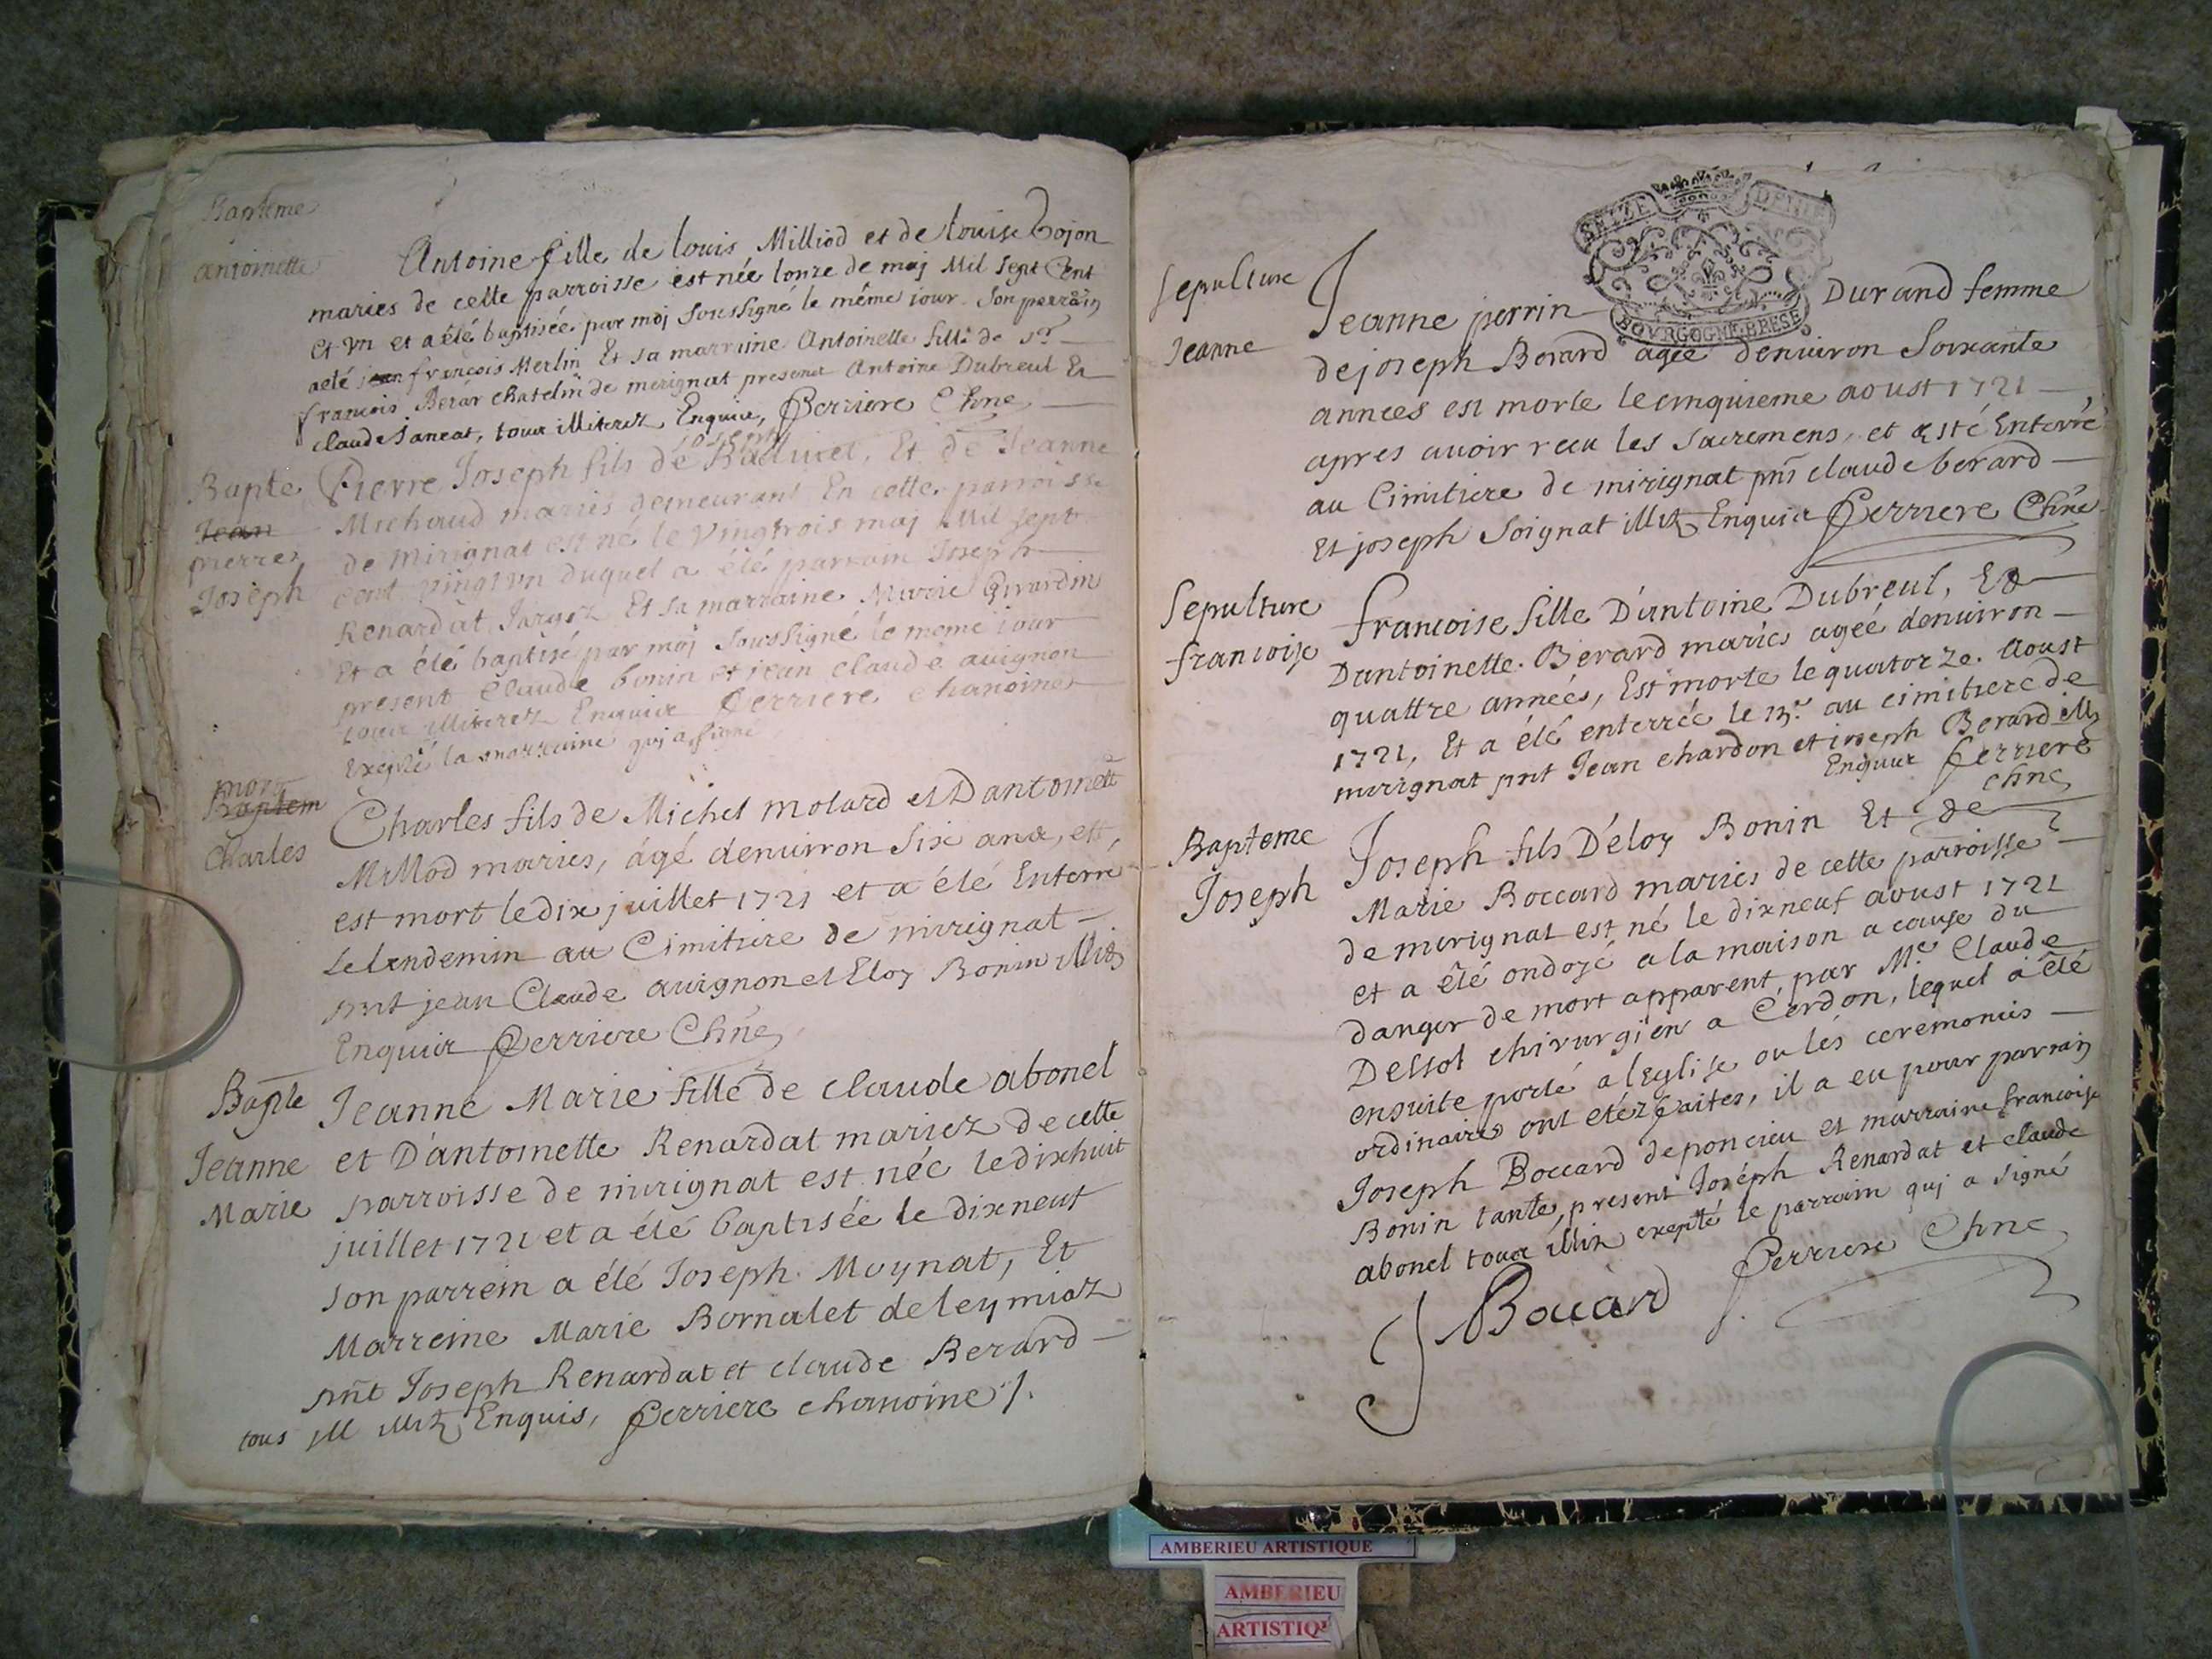 Bapteme
antoinette
Antoine fille de louis Milliod et de louise Gojon
maries de cette parroisse est née lonze de maj Mil sept Cent
et vn et a été baptisée par moj soussigné le même iour. Son parrain
aeté jean françois Merlin Et sa marraine Antoinette fille de Sr
francois Berar chatelin de merignat present Antoine Dubreul Et
claude Janeat, tous illiterez Enquis, Perriere Chne
Bapte
Jean
pierre
Joseph
joseph
Pierre Joseph fils de Baduvel, Et de Jeanne
Michaud mariés demeurant En cette parroisse
de Mirignat est né le Vingtrois maj Mil sept
cent vingt vn duquel a été parrain Joseph
Renardat Et sa marraine Marie Girardin
Et a été baptisé par moj soussigné le meme iour
present Claude bonin et jean claude auignon
tous illiterez Enquis Perriere chanoine
Excepté la marraine quj a signé
mort
Baptem
Charles
Charles fils de Michel molard et Dantoinett
Milliod maries, agé denuiron six ans, est,
est mort le dix juillet 1721 et a été Enterré
le lendemin au Cimitiere de mirignat
pnt jean Claude auignon et Eloy Bonin illitz
Enquis Perriere Chne
Bapte
Jeanne
Marie
Jeanne Marie fille de claude abonel
et D'antoinette Renardat mariez de cette
parroisse de mirignat est née le dixhuit
juillet 1721 et a été baptisée le dixneuf
son parrein a été Joseph Moynat, Et
Marreine Marie Bornalet de leymiaz
pnt Joseph Renardat et claude Berard
tous ill illitz Enquis, Perriere chanoine /.
SEIZE DENIE
BOVRGOGNE BRESE
sepulture
Jeanne
Jeanne perrin Durand femme
de joseph Berard agée denuiron Soixante
années est morte le cinquieme aoust 1721
apres auoir receu les sacremens, et a esté Enterré
au Cimitiere de mirignat pnt claude berard
Et joseph Soignat illitz Enquis Perriere Chne
Sepulture
francoise
francoise fille D'antoine Dubreul, Et
Dantoinette Berard maries agée denuiron
quattre années, Est morte le quatorze Aoust
1721, Et a été enterrée le 15e au cimitiere de
mirignat pnt Jean chardon et joseph Berard illitz
Enquis Perriere
chne
Bapteme
Joseph
Joseph fils D'eloy Bonin Et de
Marie Boccard maries de cette parroisse
de mirignat est né le dixneuf aoust 1721
et a été ondojé a la maison a cause du
danger de mort apparent, par Me Claude
Delsol chirurgien a Cerdon, lequel a été
ensuite porté a leglise ou les ceremonies
ordinaires ont etéz faites, il a eu pour parrain
Joseph Boccard de poncieu et marraine francoise
Bonin tante, present Joseph Renardat et claude
abonel tous illitz excepté le parrain quj a signé
J Boccard Perriere Chne
AMBERIEU ARTISTIQUE
AMBERIEU
ARTISTIQ